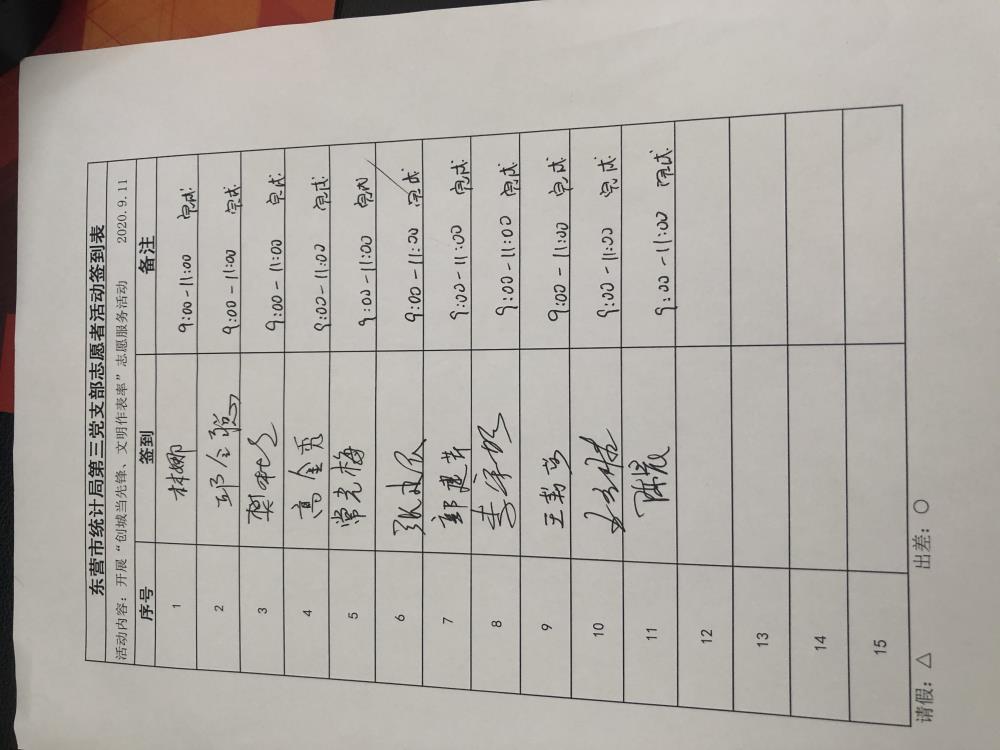 东营市统计局第三党支部志愿者活动签到表
活动内容：开展“创城当先锋、文明作表率”志愿服务活动 2020.9.11
序号 签到 备注
1 林娜 9:00-11:00 完成
2 邱全聪 9:00-11:00 完成
3 樊 9:00-11:00 完成
4 高金勇 9:00-11:00 完成
5 常光梅 9:00-11:00 完成
6 张 9:00-11:00 完成
7 郭建芹 9:00-11:00 完成
8 李 9:00-11:00 完成
9 王 9:00-11:00 完成
10 9:00-11:00 完成
11 陈 9:00-11:00 完成
12
13
14
15
请假：△ 出差：○